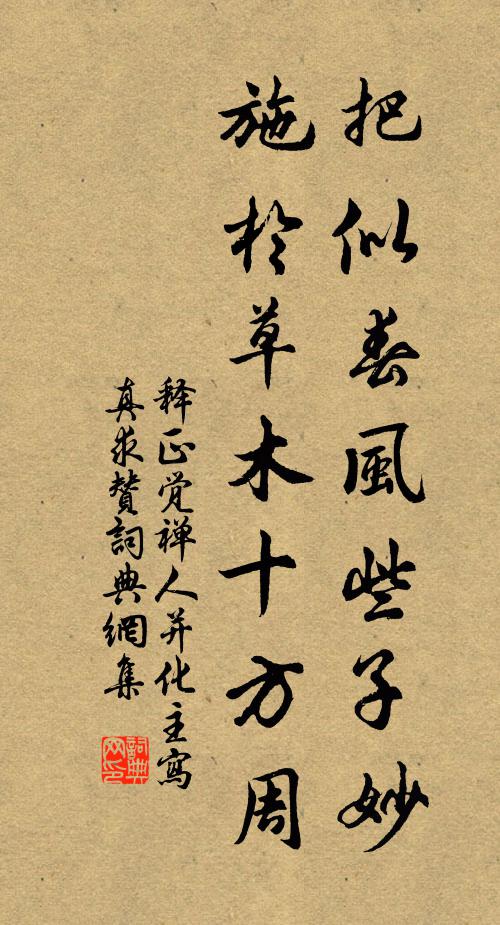 把似春風些子妙
施於草木十方周
释正觉禅人并化主寫
真求赞詞典網集
詞典
网印